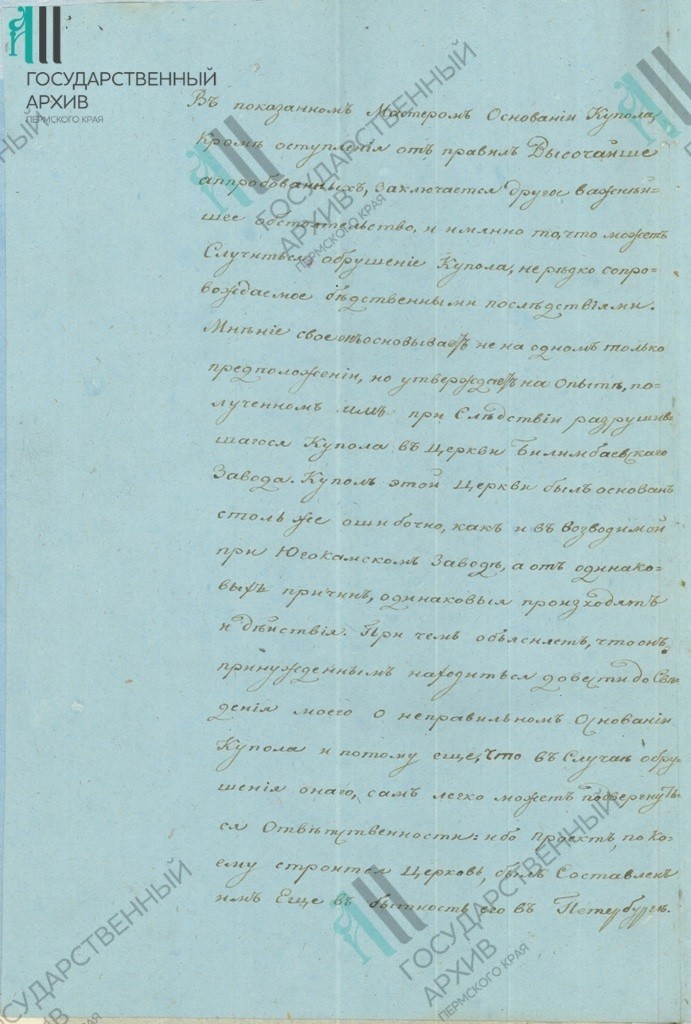 ГОСУДАРСТВЕННЫЙ
АРХИВ
ПЕРМСКОГО КРАЯ
Въ показанномъ Мастеромъ Основаніи Купола,
кромѣ оступленія отъ правилъ Высочайше
аппробованныхъ, заключается другое важнѣй-
шее обстоятельство, и имянно то, что можетъ
Случиться обрушеніе Купола, нерѣдко сопро-
вождаемое бѣдственными послѣдствіями.
Мнѣніе свое онъ основываетъ не на одномъ только
предположеніи, но утверждаетъ на Опытѣ, по-
лученномъ имъ при Слѣдствіи разрушив
шагося Купола въ Церкви Билимбаевскаго
Завода. Куполъ этой Церкви былъ основанъ
столь же ошибочно, какъ и въ возводимой
при Югокамскомъ Заводѣ, а отъ одинако-
выхъ причинъ, одинаковыя произходятъ
и дѣйствія. При чемъ объясняетъ, что онъ
принужденнымъ находится довести до Свѣ
денія моего о неправильномъ Основаніи
Купола и потому еще, что въ Случаѣ обру
шенія онаго, самъ легко можетъ подвергнуть
ся Отвѣтственности: ибо проэктъ, по Ко-
ему строится Церковь, былъ Составленъ
имъ Еще въ бытность его въ Петербургѣ.
ГОСУДАРСТВЕННЫЙ
АРХИВ
ПЕРМСКОГО КРАЯ
ГОСУДАРСТВЕННЫЙ
АРХИВ
ПЕРМСКОГО КРАЯ